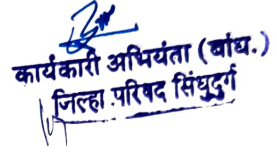 कार्यकारी अभियंता (बांध.)
जिल्हा परिषद सिंधुदुर्ग